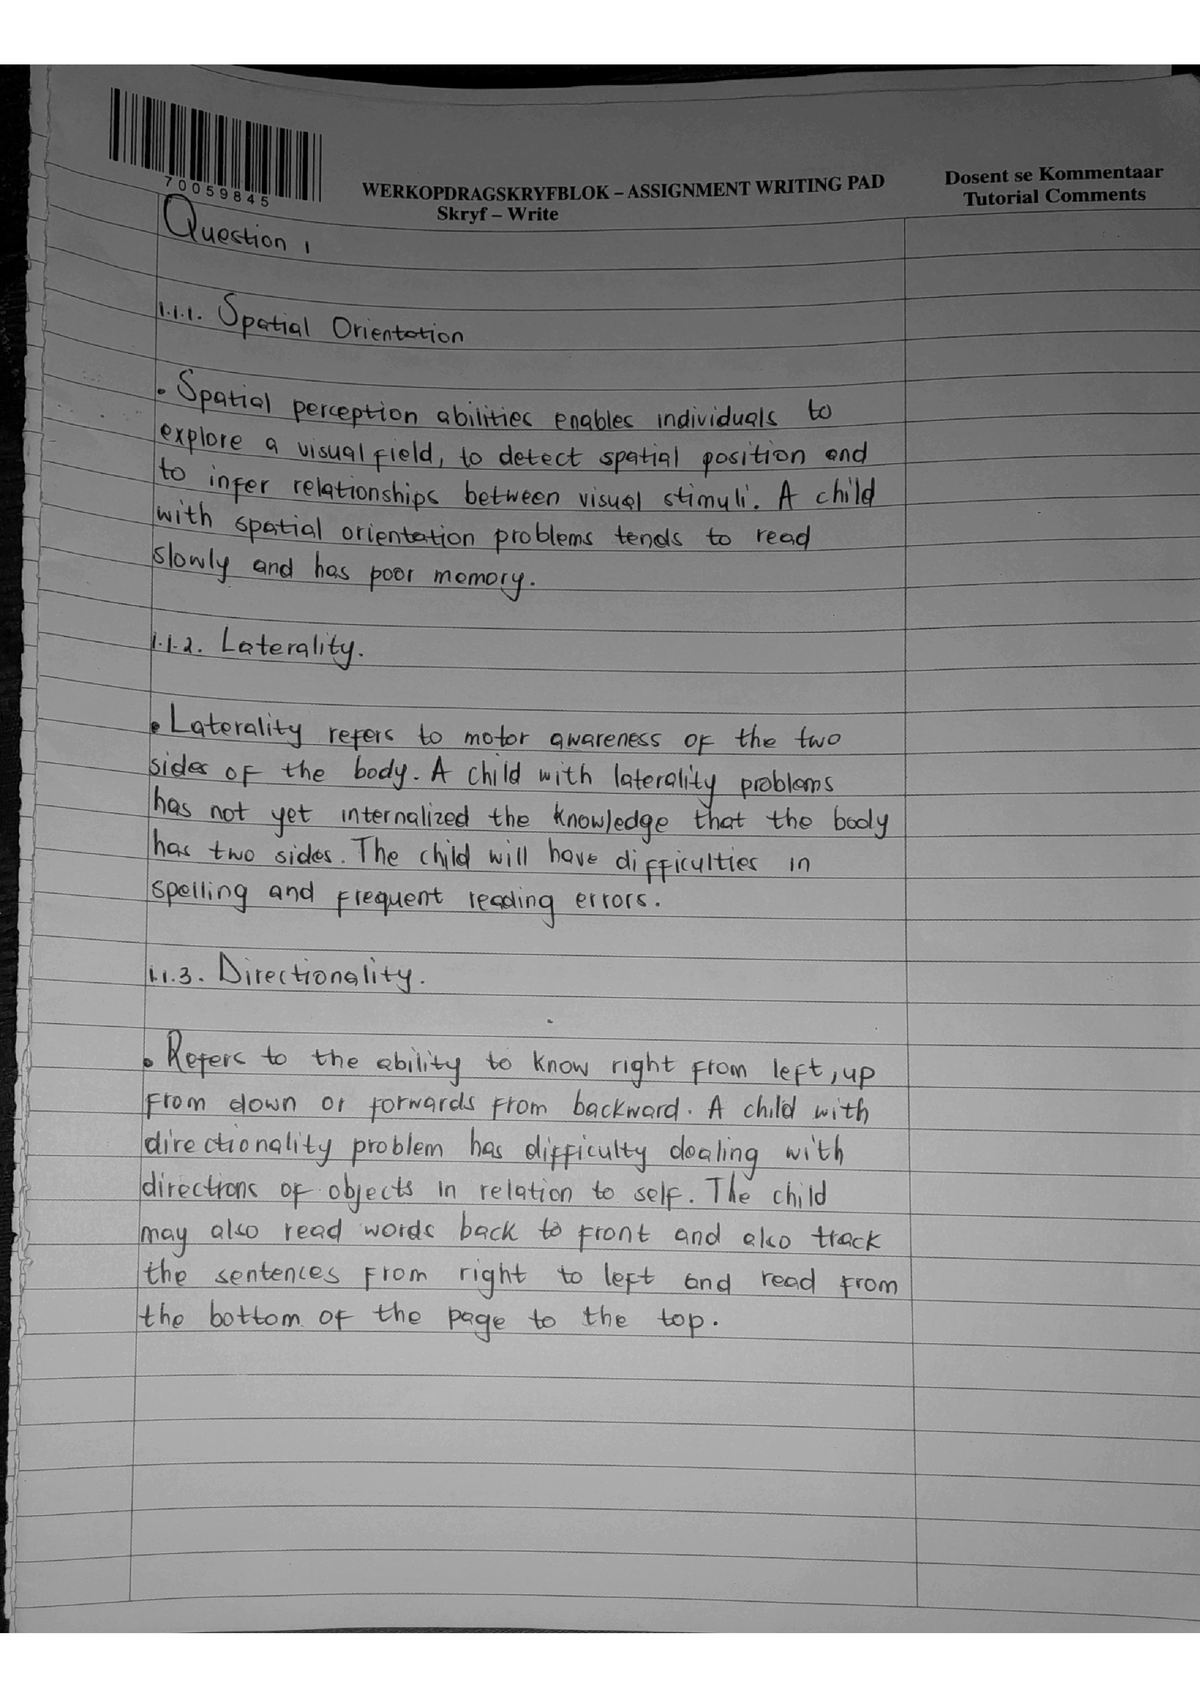 70059845
WERKOPDRAGSKRYFBLOK – ASSIGNMENT WRITING PAD
Skryf – Write
Dosent se Kommentaar
Tutorial Comments
Question 1
1.1.1. Spatial Orientation
• Spatial perception abilities enables individuals to
explore a visual field, to detect spatial position and
to infer relationships between visual stimuli. A child
with spatial orientation problems tends to read
slowly and has poor memory.
1.1.2. Laterality.
• Laterality refers to motor awareness of the two
sides of the body. A child with laterality problems
has not yet internalized the knowledge that the body
has two sides. The child will have difficulties in
spelling and frequent reading errors.
1.1.3. Directionality.
• Refers to the ability to know right from left, up
from down or forwards from backward. A child with
directionality problem has difficulty dealing with
directions of objects in relation to self. The child
may also read words back to front and also track
the sentences from right to left and read from
the bottom of the page to the top.